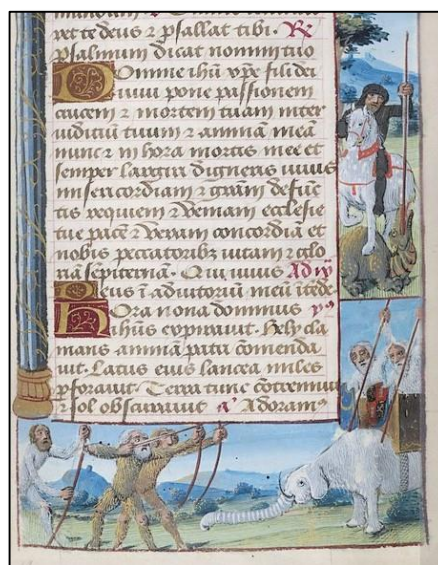 et te deus ⁊ psallat tibi. R
psalmum dicat nomini tuo
Domine ihū xpe fili dei
uiui pone passionem
crucem ⁊ mortem tuam inter
iudicium tuum ⁊ animā meā
nunc ⁊ in hora mortis mee et
semper largiri digneris uiuis
misericordiam ⁊ grām defūc
tis requiem ⁊ ueniam ecclesie
tue pacē ⁊ veram concordiā et
nobis peccatoribz uitam ⁊ glo
riā sepiternā. Qui uiuis
Deus ī adiutoriū meū ītēde
Hora nona dominus
ihūs expirauit. Hely cla
mans animā patri cōmenda
uit. Latus eius lancea miles
pforauit. Terra tunc cōtremuit
⁊ sol obscurauit a Adoram